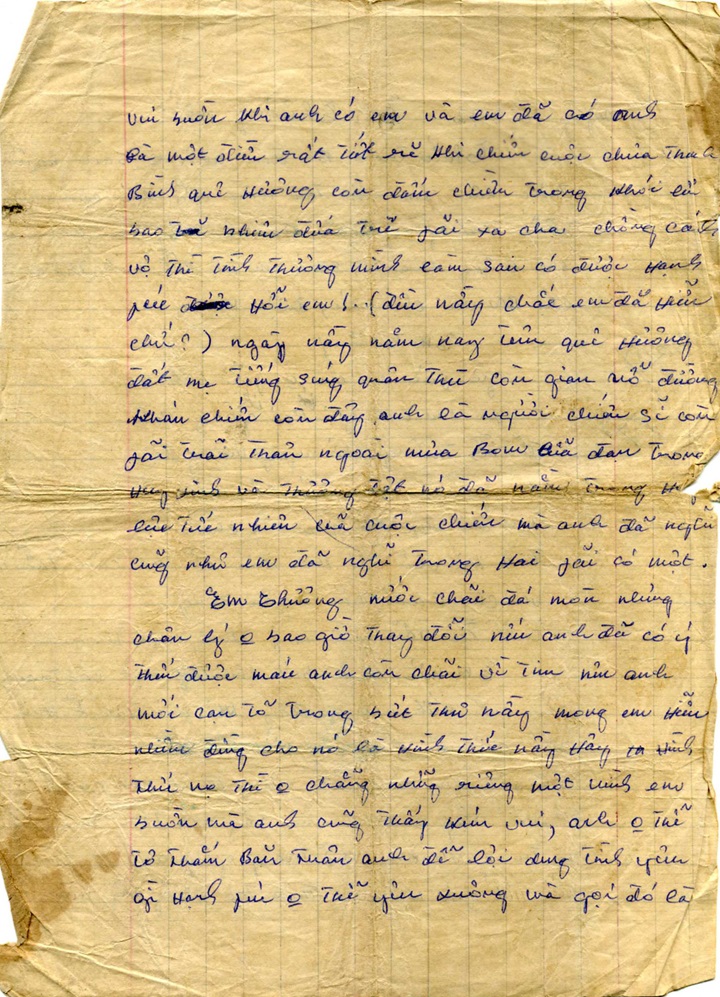 vui buồn khi anh có em và em đã có anh
là một điều rất tốt rẽ khi chiến cuộc chưa thanh
Bình quê Hương còn đấm chiền trong khói lữa
bao nhiêu đứa trẽ phãi xa cha chồng cách
vợ thì tình thương mình làm sao có được Hạnh
phúc Hỡi em! (đến nầy chắc em đã Hiễu
chứ?) ngày nầy năm nay trên quê Hương
đất mẹ tiếng súng quân thù còn gian nỗ đường
kháng chiến còn đây anh là người chiến sĩ còn
phãi trãi thân ngoài mưa Bom lữa đạn trong
Huy sinh và thương tật nó đã nằm trong
tất nhiên cuã cuộc chiến mà anh đã nghĩ
cũng như em đã nghĩ trong Hai phãi có một.
Em thương nước chãi đá mòn nhưng
chân lý o bao giờ thay đỗi nếu anh đã có ý
thức được máu anh còn chãi về tim nên anh
mới can tõ trong bứt thư nầy mong em Hiễu
nhiều đừng cho nó là Hình thức nầy Hay Hình
thức nọ thì o chẵng những riêng một mình em
buồn mà anh cũng thấy kém vui, anh o thễ
tô thắm Bãn thân anh đễ lợi dụng tình yêu
gì Hạnh phúc o thễ yêu xuông mà gọi đó là